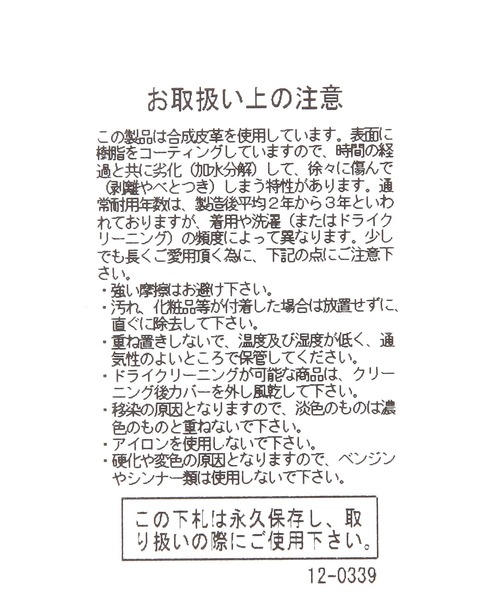 お取扱い上の注意
この製品は合成皮革を使用しています。表面に
樹脂をコーティングしていますので、時間の経
過と共に劣化（加水分解）して、徐々に傷んで
（剥離やべとつき）しまう特性があります。通
常耐用年数は、製造後平均２年から３年といわ
れておりますが、着用や洗濯（またはドライク
リーニング）の頻度によって異なります。少し
でも長くご愛用頂く為に、下記の点にご注意下
さい。
・強い摩擦はお避け下さい。
・汚れ、化粧品等が付着した場合は放置せずに、
直ぐに除去して下さい。
・重ね置きしないで、温度及び湿度が低く、通
気性のよいところで保管してください。
・ドライクリーニングが可能な商品は、クリー
ニング後カバーを外し風乾して下さい。
・移染の原因となりますので、淡色のものは濃
色のものと重ねないで下さい。
・アイロンを使用しないで下さい。
・硬化や変色の原因となりますので、ベンジン
やシンナー類は使用しないで下さい。
この下札は永久保存し、取
り扱いの際にご使用下さい。
12-0339